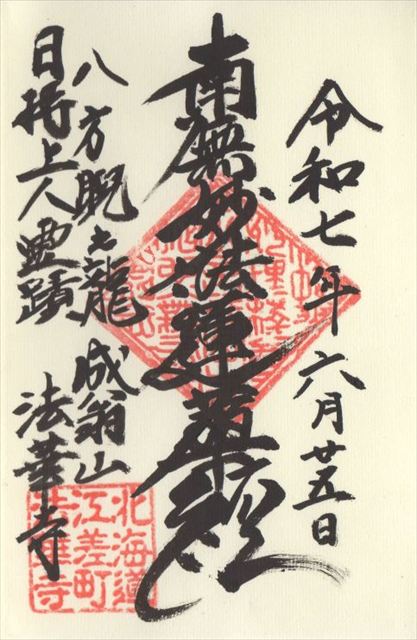 令和七年六月廿五日
南無妙法蓮華経
八方睨之龍 成翁山
日持上人霊蹟 法華寺
北海道
江差町
法華寺